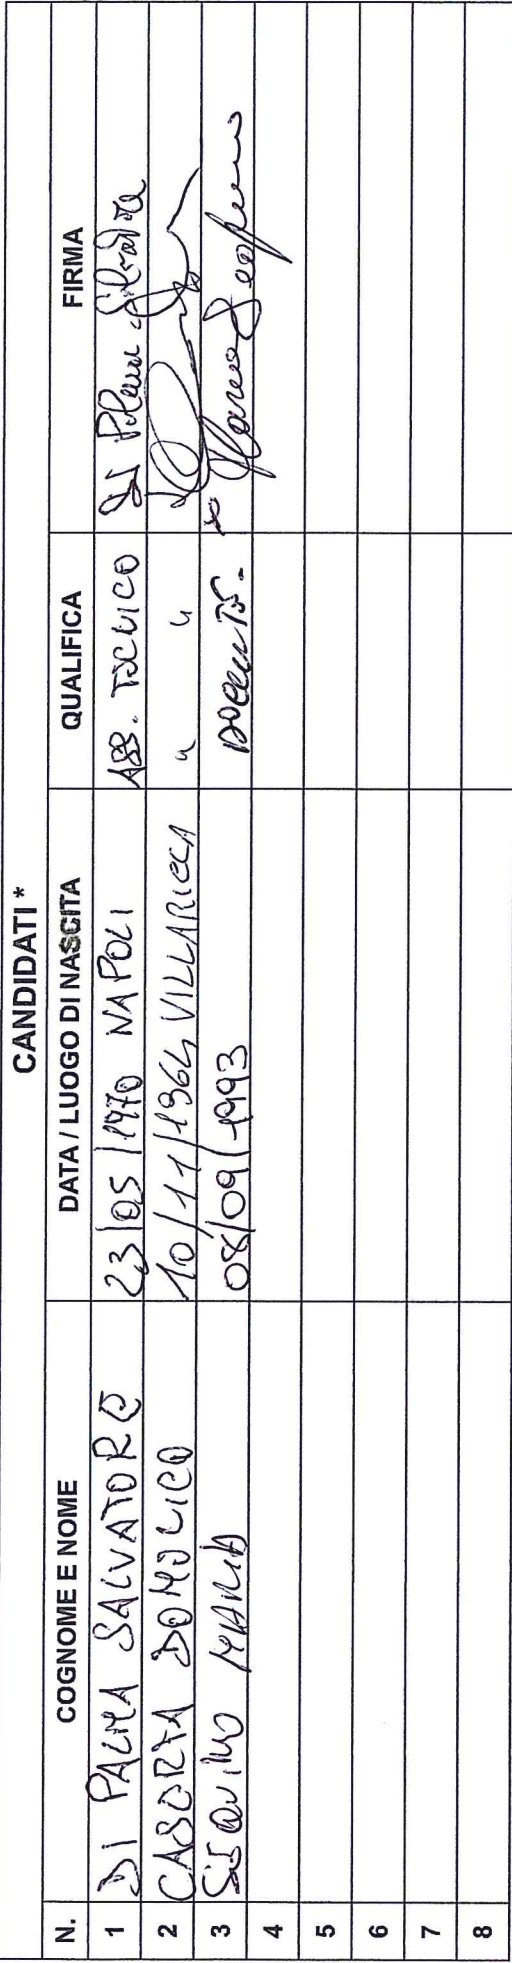 CANDIDATI *
N. COGNOME E NOME DATA / LUOGO DI NASCITA QUALIFICA FIRMA
1 DI PALMA SALVATORE 23/05/1970 NAPOLI ASS. TECNICO Di Palma Salvatore
2 CASORIA DOMENICO 10/11/1964 VILLARICCA " "
3 MARIA 08/09/1993 DOCENTE
4
5
6
7
8